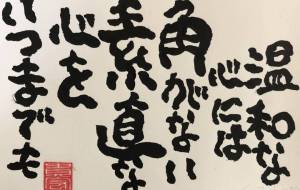 温和な
心には
角がない
素真な
心を
いつまでも